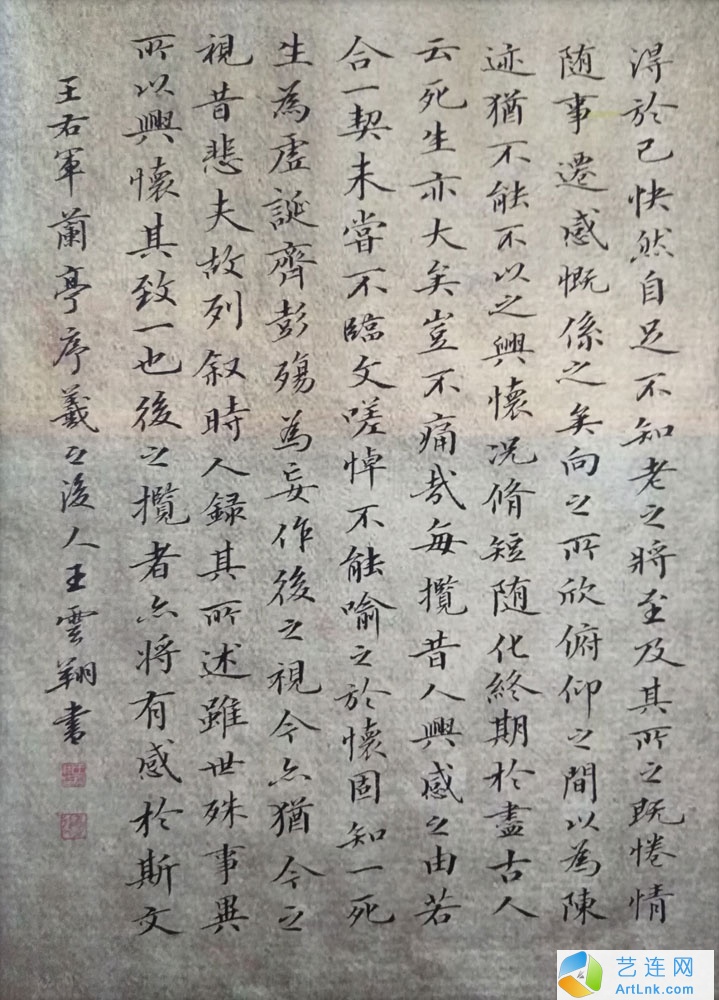 得於己快然自足不知老之將至及其所之既惓情
随事遷感慨係之矣向之所欣俯仰之間以為陳
迹猶不能不以之興懷况脩短随化終期於盡古人
云死生亦大矣豈不痛哉每攬昔人興感之由若
合一契未嘗不臨文嗟悼不能喻之於懷固知一死
生為虛誕齊彭殤為妄作後之視今亦猶今之
視昔悲夫故列叙時人録其所述雖世殊事異
所以興懷其致一也後之攬者亦将有感於斯文
王右軍蘭亭序羲之後人王雲翔書
艺连网
ArtLnk.com